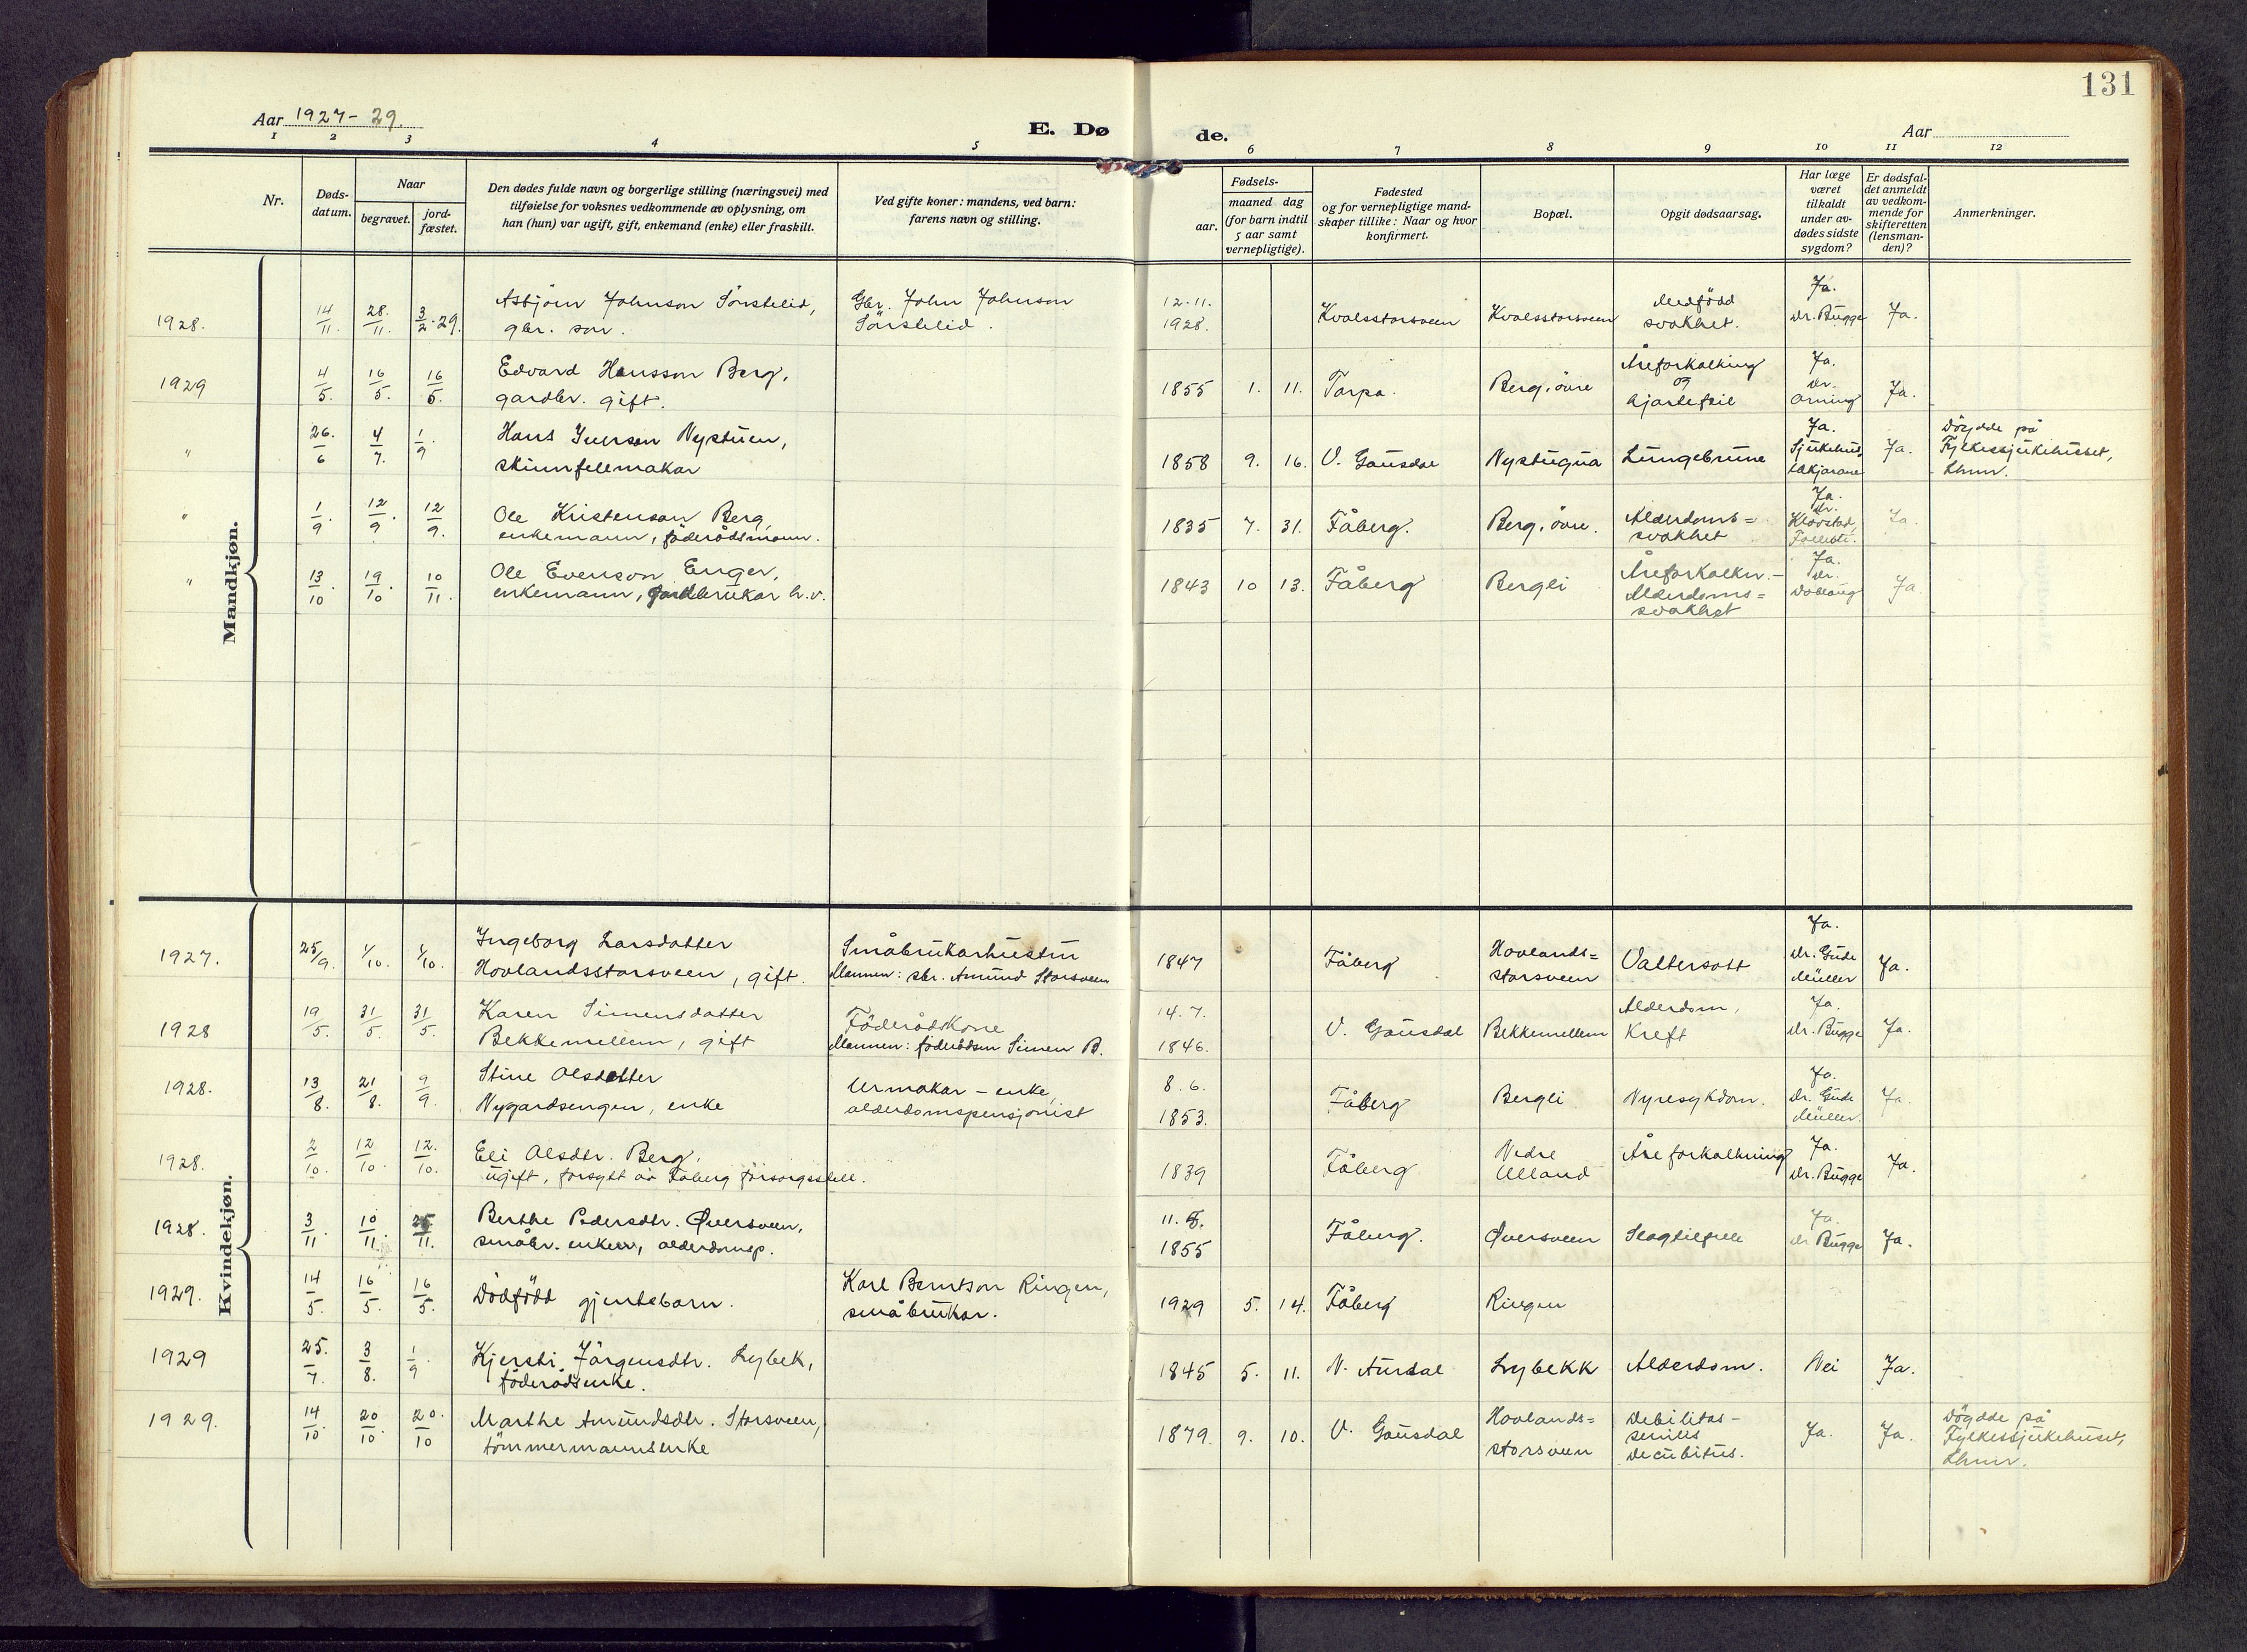 131
Aar 1927-29.
E. Dø
de.
Aar
1 2 3 4 5 6 7 8 9 10 11 12
Nr.
Døds-
datum.
Naar
begravet.
jord-
fæstet.
Den dødes fulde navn og borgerlige stilling (næringsvei) med
tilføielse for voksnes vedkommende av oplysning, om
han (hun) var ugift, gift, enkemand (enke) eller fraskilt.
Ved gifte koner: mandens, ved barn:
farens navn og stilling.
Fødsels-
aar.
maaned dag
(for barn indtil
5 aar samt
vernepligtige).
Fødested
og for vernepligtige mand-
skaper tillike: Naar og hvor
konfirmert.
Bopæl.
Opgit dødsaarsag.
Har læge
været
tilkaldt
under av-
dødes sidste
sygdom?
Er dødsfal-
det anmeldt
av vedkom-
mende for
skifteretten
(lensman-
den)?
Anmerkninger.
Mandkjøn.
1928. 14/11. 28./11. 3/2.29.
Asbjörn Johnson Sörstelid,
gbr. son.
Gbr. John Johnson
Sörstelid.
12.11.
1928.
Kvalsstorsveen
Kvalsstorsveen
Medfödd
svakhet.
Ja.
Dr. Bugge
Ja.
1929 4/5. 16/5. 16/5.
Edvard Hansson Berg,
gardbr. gift.
1855 1. 11. Torpa. Berg, övre
Åreforkalking
og
hjartefeil
Ja.
Dr.
Orning
Ja.
" 26./6 4/7. 1/9.
Hans Iverson Nystuen,
skinnfellmakar
1858 9. 16. V. Gausdal Nystugua Lungebrune
Ja.
Sjukehus,
lækjarane
Ja.
Döydde på
Fylkessjukehuset,
Lhmr.
" 1/9. 12/9. 12/9.
Ole Kristenson Berg,
enkemann, föderådsmann.
1835 7. 31. Fåberg. Berg, övre.
Alderdoms=
svakhet
Ja.
Dr.
Klovstad,
Follebu.
Ja.
" 13/10 19/10. 10/11.
Ole Evenson Enger,
enkemann, gardbrukar h.v.
1843 10 13. Fåberg Bergli
Åreforkalkn.-
Alderdoms=
svakhet
Ja.
Dr.
Doblaug
Ja
Kvindekjøn.
1927. 25/9. 1/10. 1/10.
Ingeborg Larsdatter
Hovlandsstorsveen, gift.
Småbrukarhustru
Mannen: sbr. Amund Storsveen
1847 Fåberg
Hovlands=
storsveen
Vattersott
Ja.
Dr. Gude
Müller
Ja.
1928 19/5. 31/5. 31/5.
Karen Simensdatter
Bekkemellem, gift
Föderådskone
Mannen: föderådsm Simen B.
14.7.
1846.
V. Gausdal Bekkemellem
Alderdom,
Kreft
Ja.
Dr. Bugge
Ja.
1928. 13/8. 21/8. 9/9.
Stine Olsdatter
Nygardsengen, enke
Urmakar-enke,
alderdomspensjonist
8.6.
1853.
Fåberg Bergli Nyresykdom.
Ja.
Dr. Gude
Müller.
Ja.
1928. 2/10. 12/10. 12./10.
Eli Olsdtr. Berg,
ugift, forsytt av Fåberg forsorgsstell.
1839 Fåberg
Nedre
Ulland
Åreforkalkning
Ja.
Dr. Bugge
Ja.
1928. 3/11 10/11. 25/11.
Berthe Pedersdtr. Øversveen,
småbr. enke, alderdomsp.
11.
1855
Fåberg. Øversveen Slagtilfelle
Ja.
Dr Bugge
Ja.
1929. 14/5. 16/5. 16/5.
Dödfödd gjentebarn.
Karl Berntson Ringen,
småbrukar.
1929 5. 14. Fåberg Ringen
1929 25./7. 3/8. 1/9.
Kjersti Jörgensdtr. Lybek,
föderådsenke.
1845 5. 11. N. Aurdal Lybekk Alderdom. Nei Ja.
1929. 14/10. 20/10 20./10
Marthe Amundsdtr. Storsveen,
tömmermannsenke
1879. 9. 10. V. Gausdal
Hovlands=
storsveen
Debilitas-
senilis
Decubitus.
Ja. Ja.
Döydde på
Fylkessjukehuset,
Lhmr.